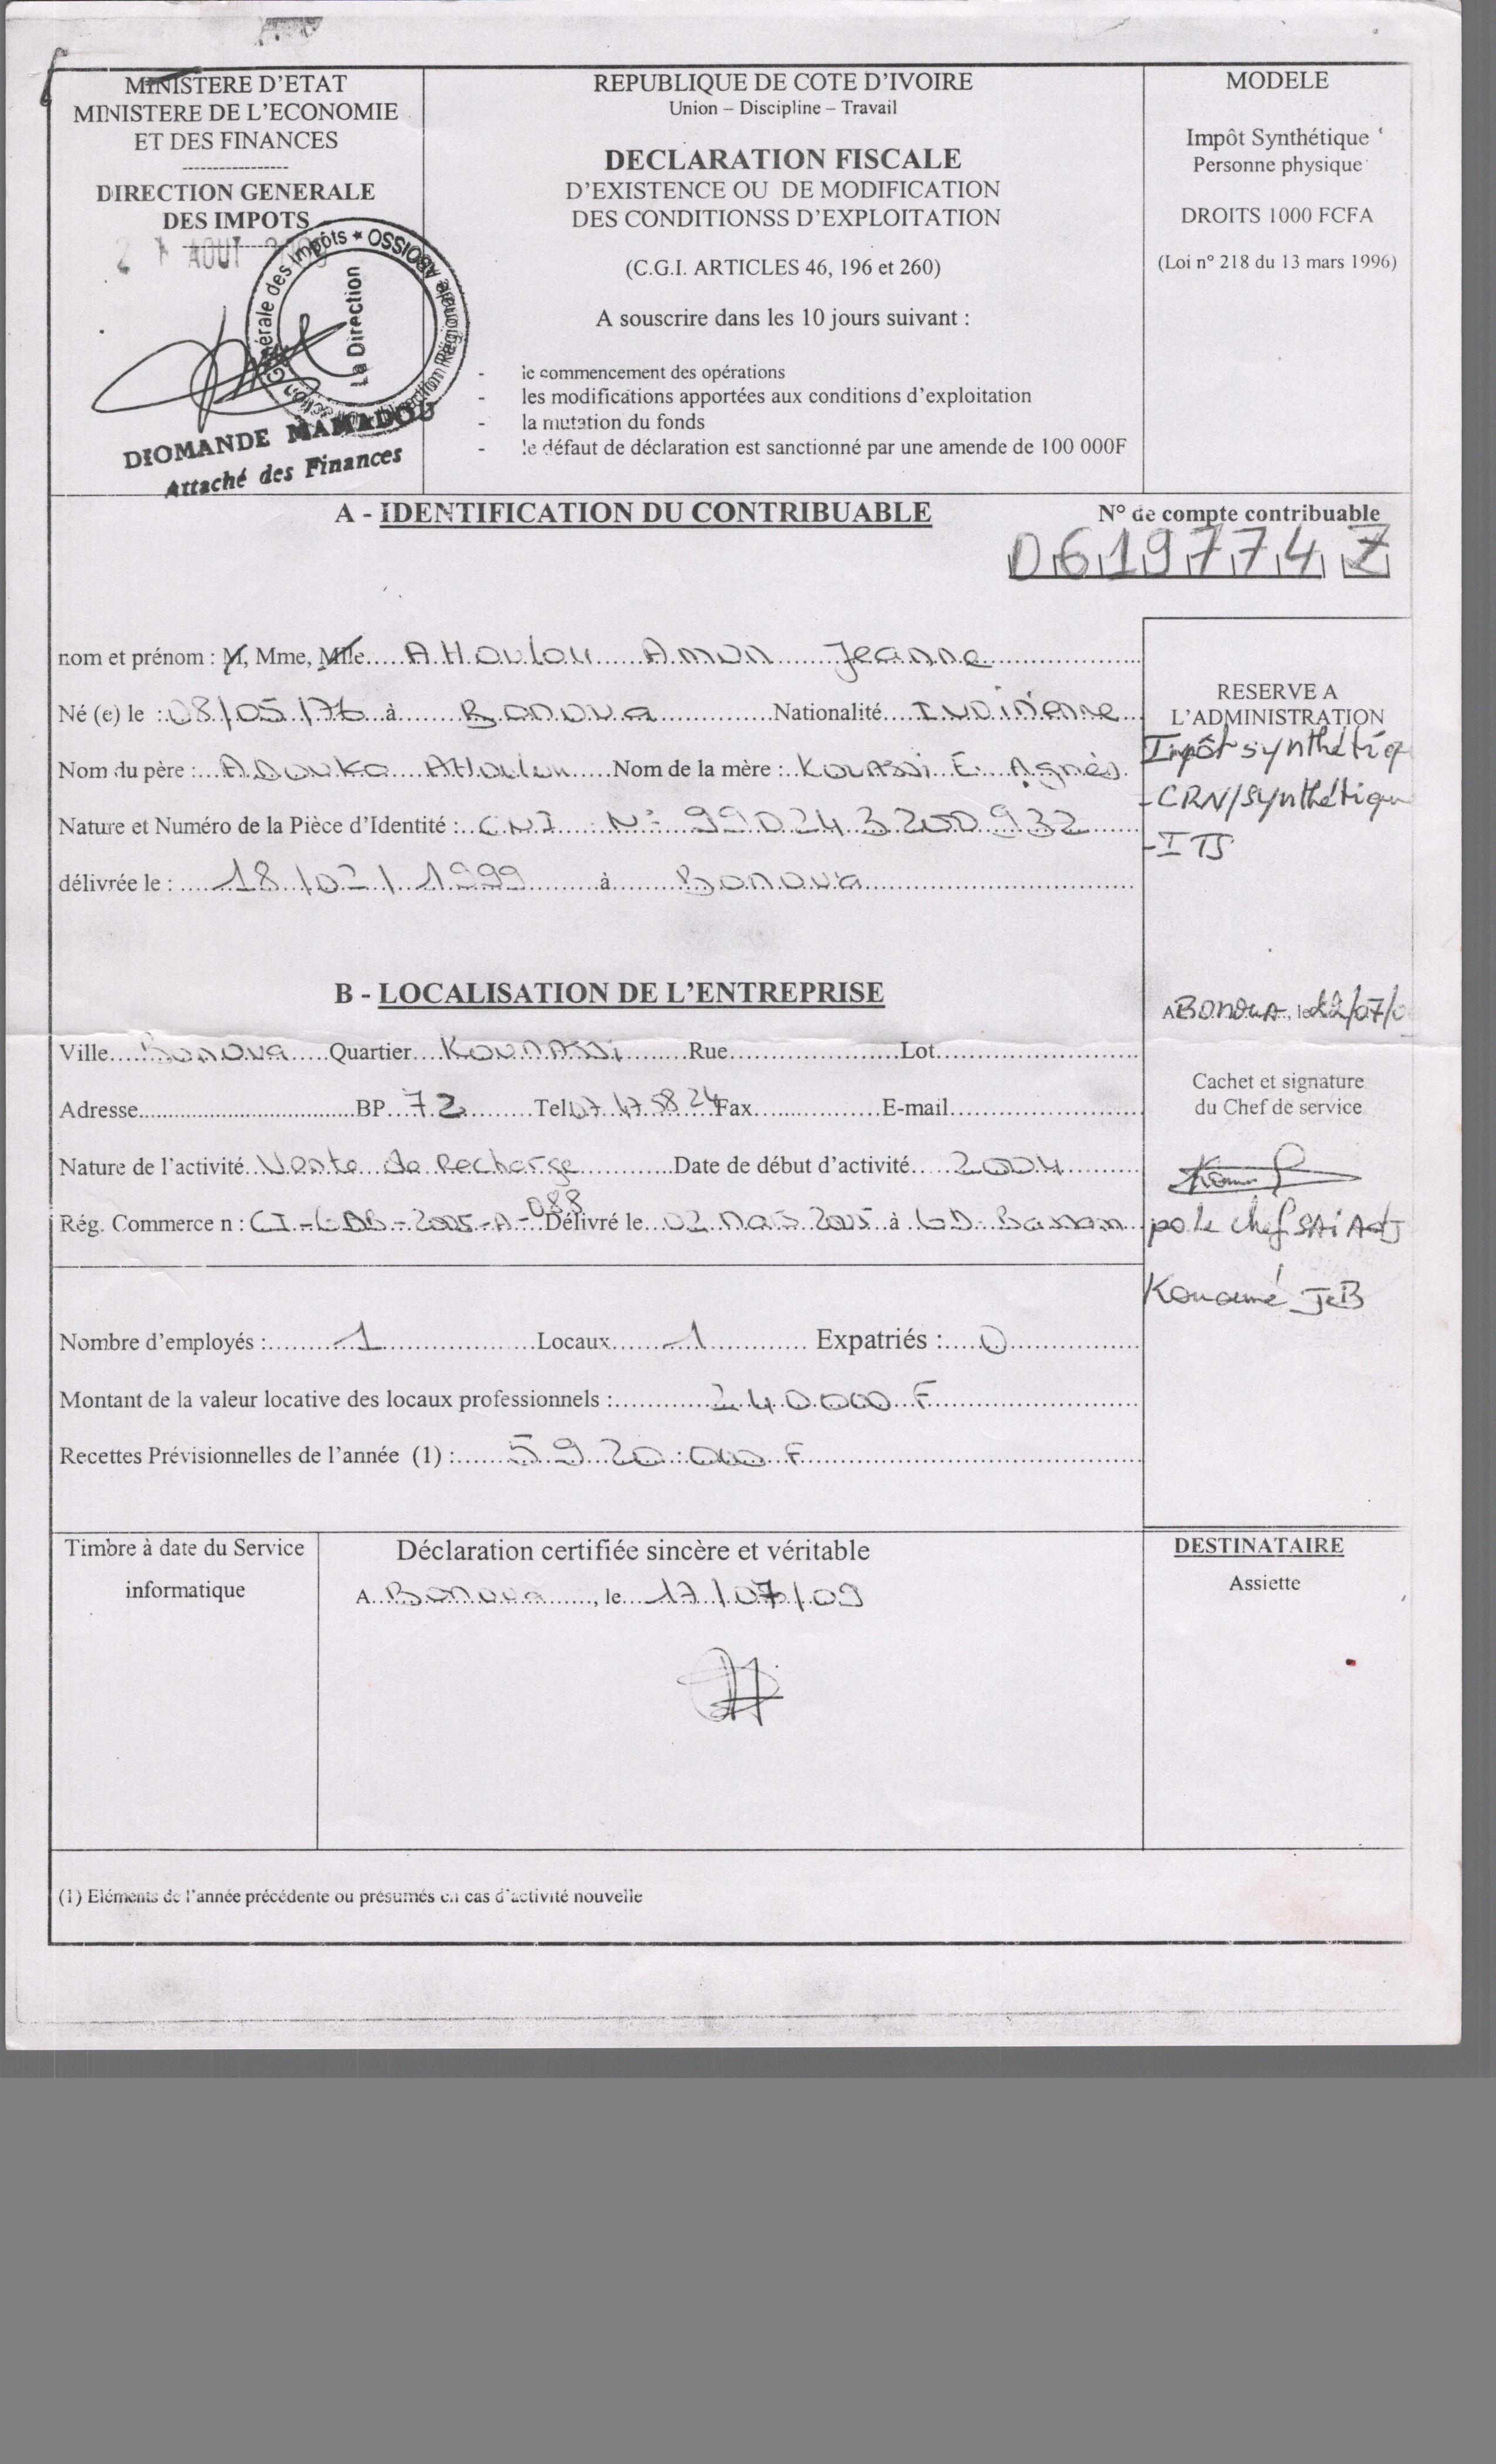 MINISTERE D'ETAT
MINISTERE DE L'ECONOMIE
ET DES FINANCES
----------------
DIRECTION GENERALE
DES IMPOTS
AOUT
Générale des Impôts * ABOISSO
La Direction
DIOMANDE MAMADOU
Attaché des Finances
REPUBLIQUE DE COTE D'IVOIRE
Union – Discipline – Travail
DECLARATION FISCALE
D'EXISTENCE OU DE MODIFICATION
DES CONDITIONSS D'EXPLOITATION
(C.G.I. ARTICLES 46, 196 et 260)
A souscrire dans les 10 jours suivant :
- le commencement des opérations
- les modifications apportées aux conditions d'exploitation
- la mutation du fonds
- le défaut de déclaration est sanctionné par une amende de 100 000F
MODELE
Impôt Synthétique
Personne physique
DROITS 1000 FCFA
(Loi n° 218 du 13 mars 1996)
A - IDENTIFICATION DU CONTRIBUABLE
N° de compte contribuable
0619774 Z
nom et prénom : M, Mme, Mlle AHoulou Amon Jeanne
Né (e) le : 08/05/76 à Bonoua Nationalité Ivoirienne
Nom du père : Adouko AHoulou Nom de la mère : Kouassi E. Agnès
Nature et Numéro de la Pièce d'Identité : CNI N° 990243200932
délivrée le : 18/02/1999 à Bonoua
RESERVE A
L'ADMINISTRATION
Impôt synthétiq
- CRN/Synthétique
- ITS
B - LOCALISATION DE L'ENTREPRISE
Ville Bonoua Quartier Koumassi Rue Lot
Adresse BP 72 Tel 07 47 58 24 Fax E-mail
Nature de l'activité Vente de Recharge Date de début d'activité 2004
Rég. Commerce n : CI-GBB-2005-A-088 Délivré le 02 Mars 2005 à GD Bassam
A BONOUA, le 22/07/0
Cachet et signature
du Chef de service
po le chef SAI Adj
Kouamé J.B
Nombre d'employés : 1 Locaux 1 Expatriés : 0
Montant de la valeur locative des locaux professionnels : 240.000 F
Recettes Prévisionnelles de l'année (1) : 5 920.000 F
Timbre à date du Service
informatique
Déclaration certifiée sincère et véritable
A Bonoua, le 17/07/09
DESTINATAIRE
Assiette
(1) Eléments de l'année précédente ou présumés en cas d'activité nouvelle